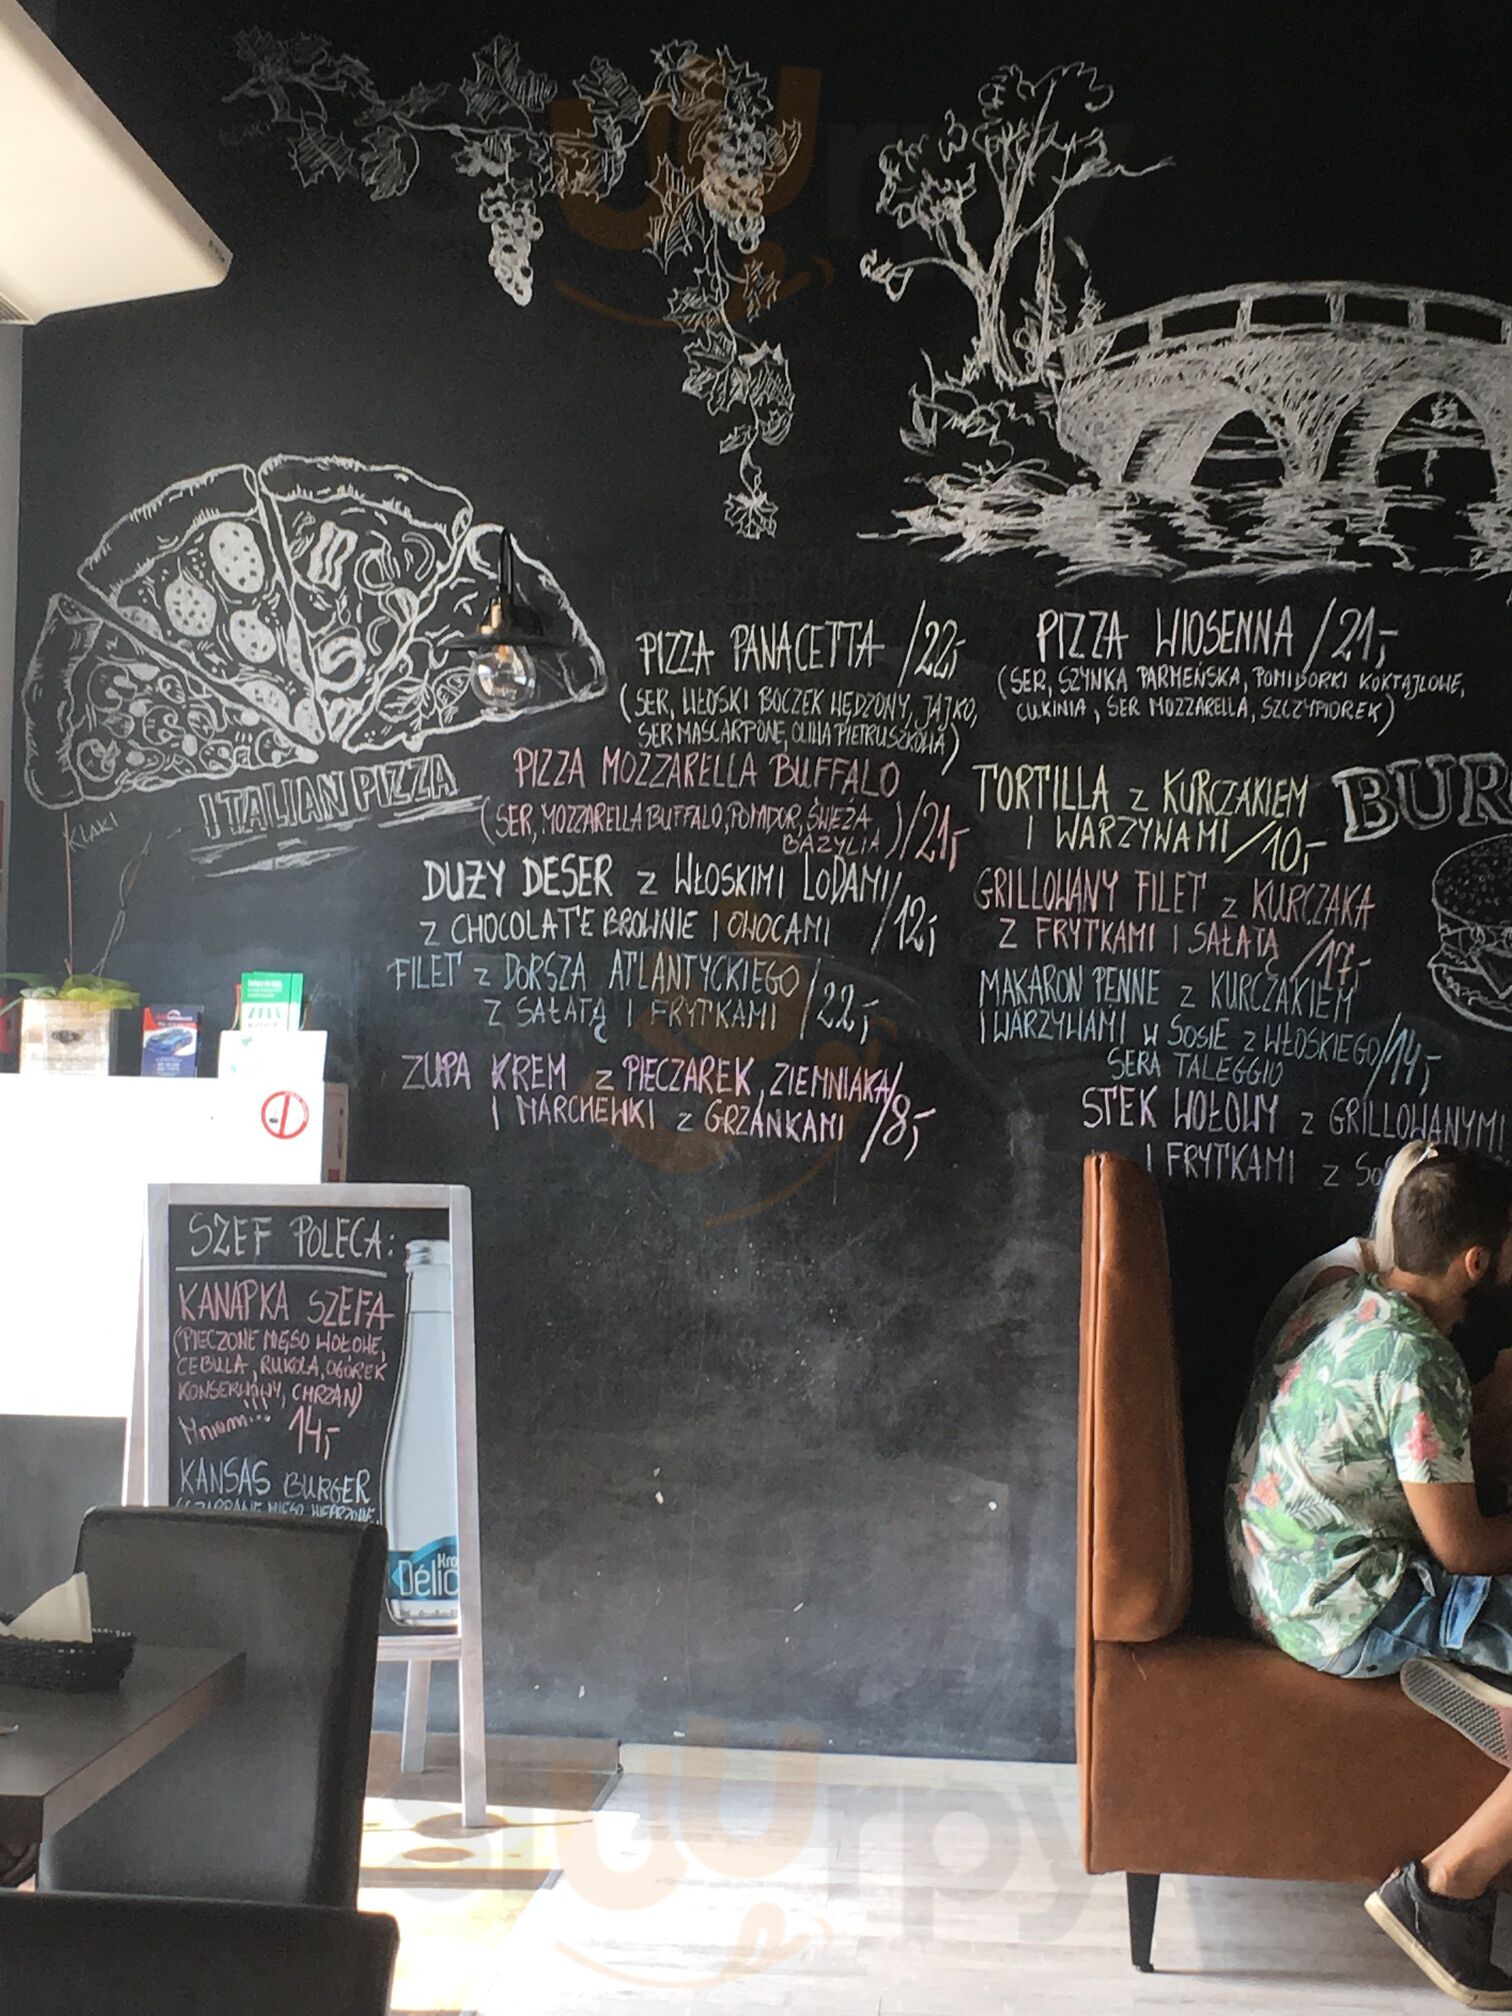 PIZZA PANACETTA /22,-
(SER, WŁOSKI BOCZEK WĘDZONY, JAJKO,
SER MASCARPONE, OLIWA PIETRUSZKOWA)
PIZZA MOZZARELLA BUFFALO
(SER, MOZZARELLA BUFFALO, POMIDOR, ŚWIEŻA
BAZYLIA) /21,-
DUŻY DESER z WŁOSKIMI LODAMI
z CHOCOLATE BROWNIE I OWOCAMI /12,-
FILET z DORSZA ATLANTYCKIEGO
z SAŁATĄ I FRYTKAMI /22,-
ZUPA KREM z PIECZAREK, ZIEMNIAKA
I MARCHEWKI z GRZANKAMI /8,-
PIZZA WIOSENNA /21,-
(SER, SZYNKA PARMEŃSKA, POMIDORKI KOKTAJLOWE,
CUKINIA, SER MOZZARELLA, SZCZYPIOREK)
TORTILLA z KURCZAKIEM
I WARZYWAMI /10,-
GRILLOWANY FILET z KURCZAKA
Z FRYTKAMI I SAŁATĄ /17,-
MAKARON PENNE z KURCZAKIEM
I WARZYWAMI w SOSIE z WŁOSKIEGO /14,-
SERA TALEGGIO
STEK WOŁOWY z GRILLOWANYMI
I FRYTKAMI z
ITALIAN PIZZA
KLAKI
BUR
SZEF POLECA:
KANAPKA SZEFA
(PIECZONE MIĘSO WOŁOWE,
CEBULA, RUKOLA, OGÓREK
KONSERWOWY, CHRZAN)
Mniam!!! 14,-
KANSAS BURGER
(SZARPANE MIĘSO WIEPRZOWE,
Kro
Délic